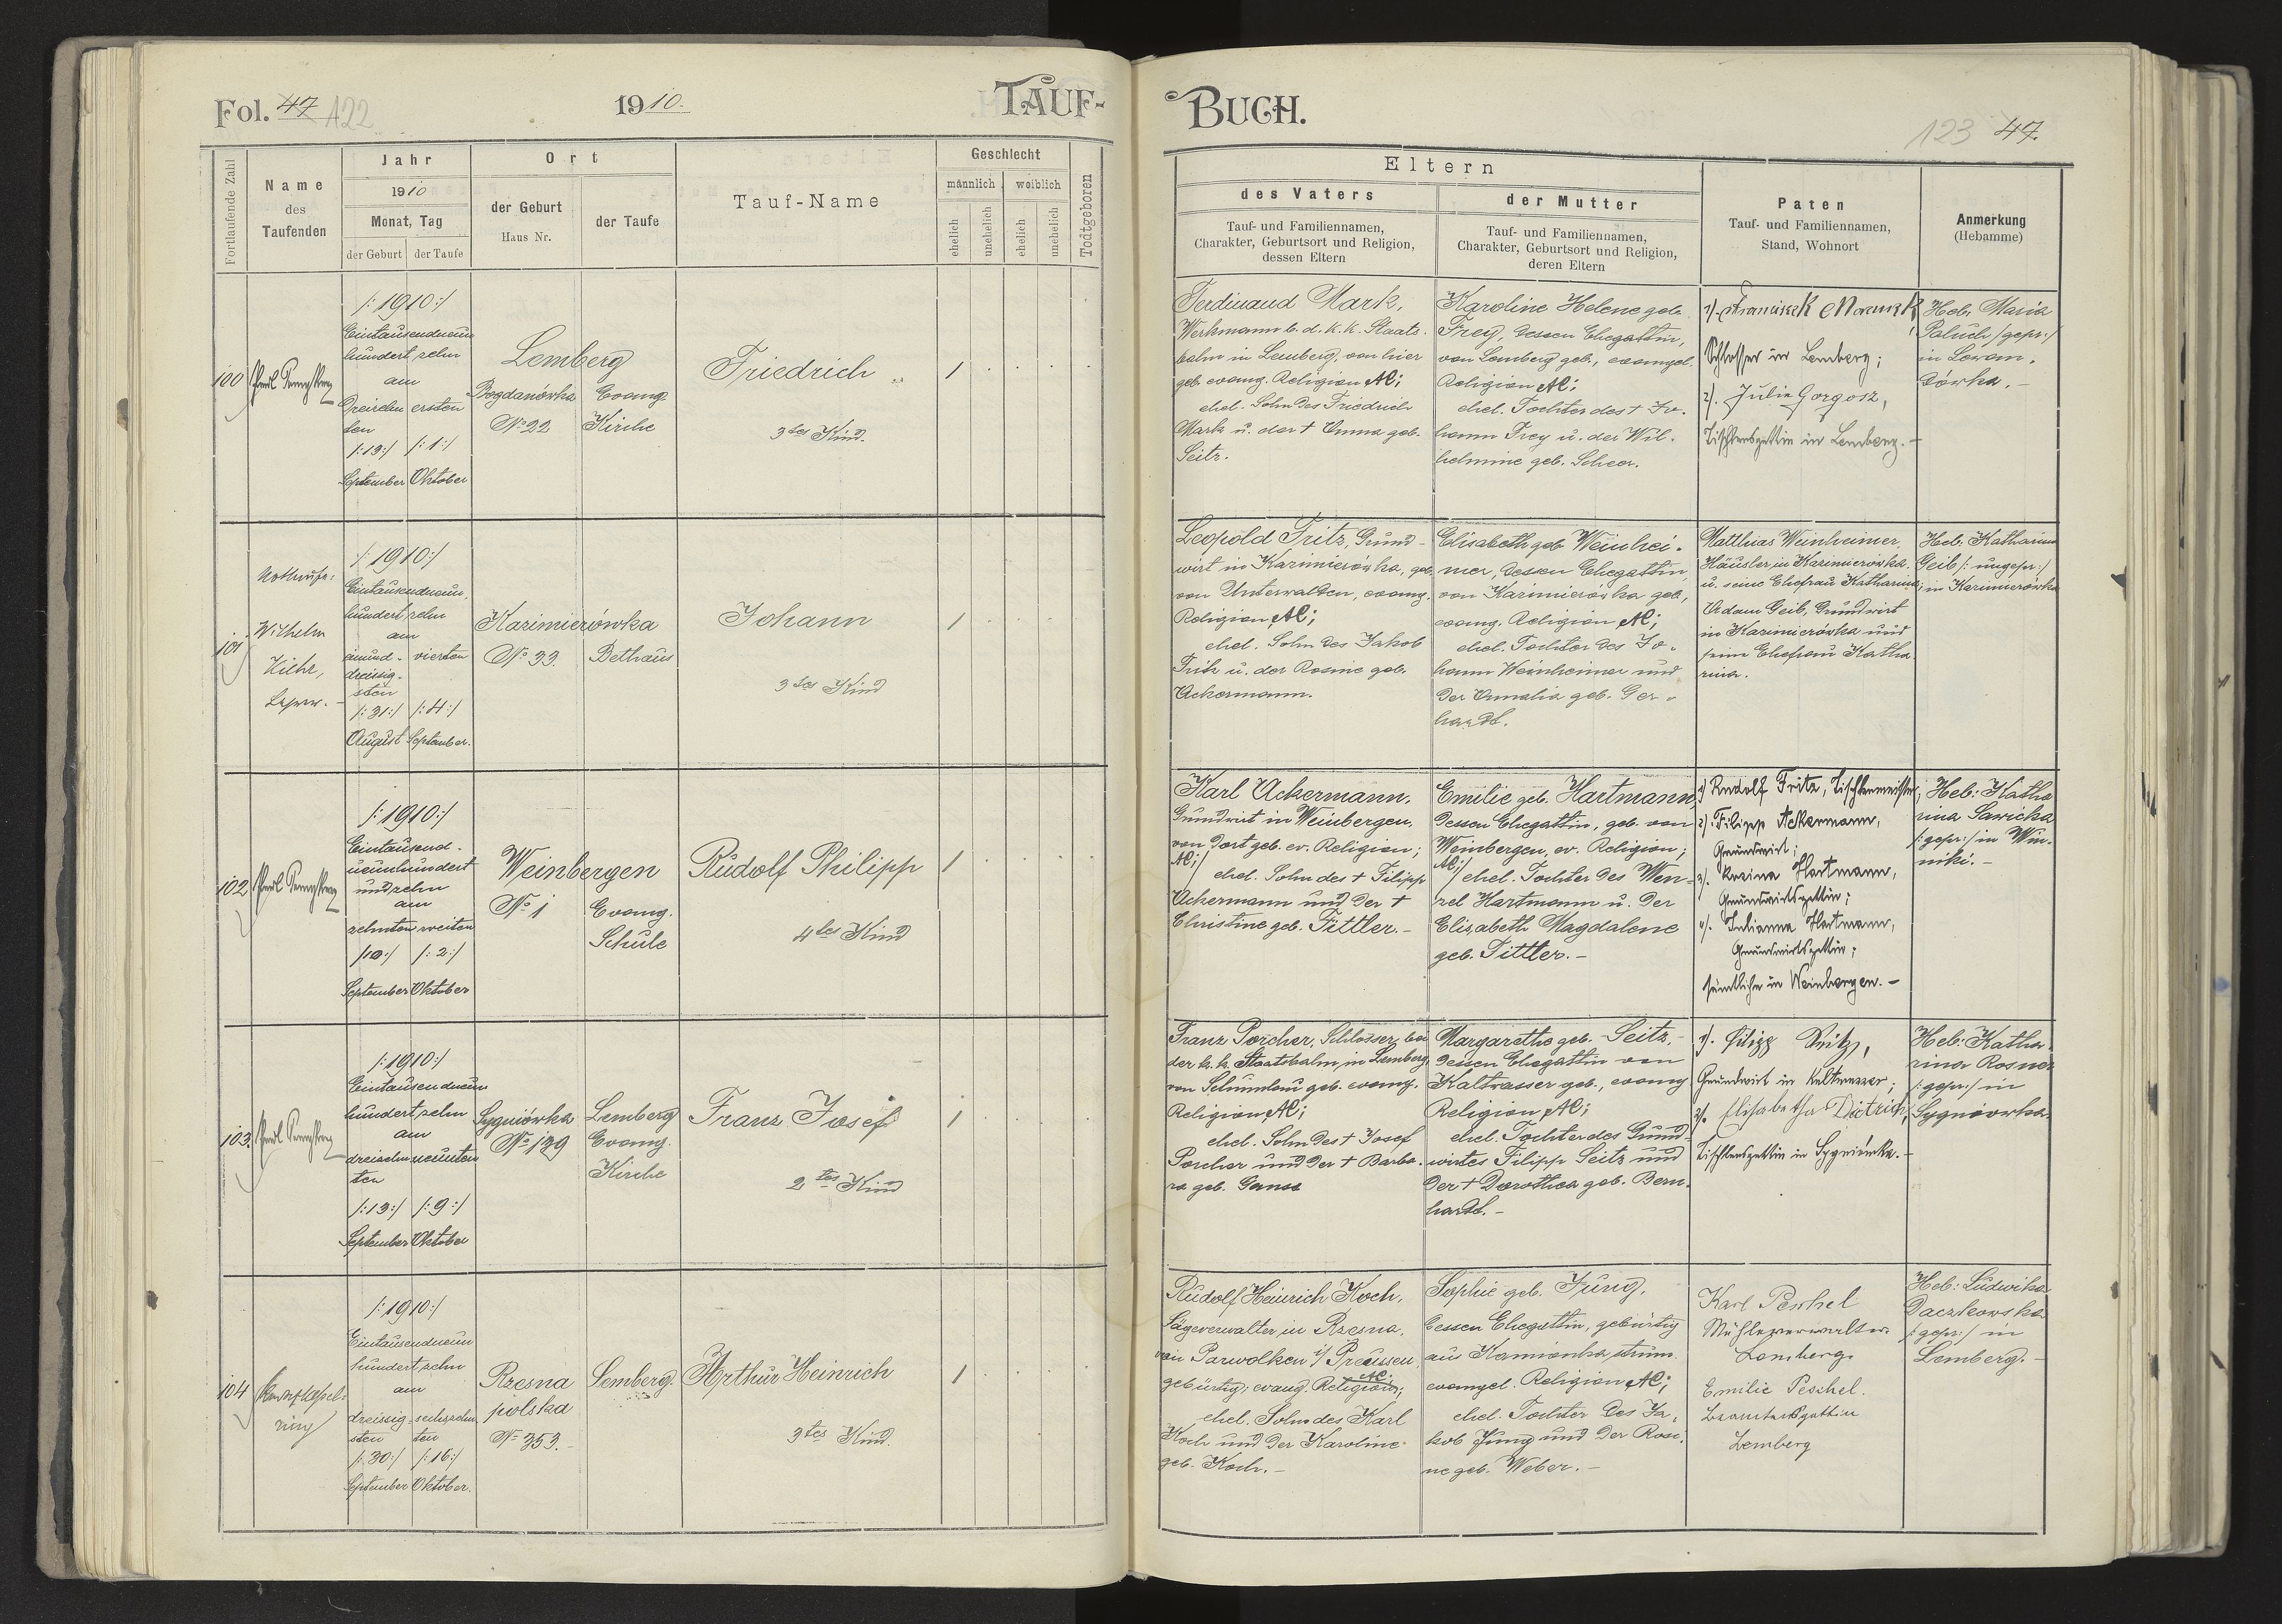 Fol. 47 122
1910.
TAUF-
Fortlaufende Zahl
Name
des
Taufenden
Jahr
1910
Monat, Tag
der Geburt
der Taufe
Ort
der Geburt
Haus Nr.
der Taufe
Tauf-Name
Geschlecht
männlich
weiblich
ehelich
unehelich
ehelich
unehelich
Todtgeboren
100
/:1910:/
Eintausendneun
hundert zehn
am
Dreizehn ersten
ten
/:13:/ /:1:/
September Oktober
Lemberg
Bogdanówka Evang.
No 22 Kirche
Friedrich
3tes Kind.
1
101
Wilhelm
/:1910:/
Eintausendneun
hundert zehn
am
einund- vierten
dreissig-
sten
/:31:/ /:4:/
August September.
Kazimierówka
No 33. Bethaus
Johann
3tes Kind
1
102
/:1910:/
Eintausend-
neunhundert
undzehn
am
zehnten zweiten
/:10:/ /:2:/
September Oktober
Weinbergen
No 1 Evang.
Schule
Rudolf Philipp
4tes Kind
1
103.
/:1910:/
Eintausendneun
hundert zehn
am
dreizehn neunten
ten
/:13:/ /:9:/
September Oktober
Sygniówka Lemberg
No 139 Evang.
Kirche
Franz Josef
2tes Kind
1
104
/:1910:/
Eintausendneun
hundert zehn
am
dreissig- sechszehn
sten ten
/:30:/ /:16:/
September Oktober.
Rzesna Lemberg.
polska
No 353.
Arthur Heinrich
3tes Kind.
1
BUCH.
123 47.
Eltern
des Vaters
Tauf- und Familiennamen,
Charakter, Geburtsort und Religion,
dessen Eltern
der Mutter
Tauf- und Familiennamen,
Charakter, Geburtsort und Religion,
deren Eltern
Paten
Tauf- und Familiennamen,
Stand, Wohnort
Anmerkung
(Hebamme)
Ferdinand Mark,
Werkmann b. d. k. k. Staats-
bahn in Lemberg, von hier
geb. evang. Religion AC;
ehel. Sohn des Friedrich
Mark u. der † Emma geb.
Seitz.
Karoline Helene geb.
Frey, dessen Ehegattin,
von Lemberg geb., evangel.
Religion AC;
ehel. Tochter des † Jo-
hann Frey u. der Wil-
helmine geb. Scheer.
1). Franciszek
Schlosser in Lemberg;
2). Julie Gorgosz,
Tischlersgattin in Lemberg.
Heb. Maria
Paluch /gepr:/
in Lewan-
dówka.-
Leopold Fritz, Grund-
wirt in Kazimierówka, geb.
von Unterwalden, evang.
Religion AC;
ehel. Sohn des Jakob
Fritz u. der Rosine geb.
Ackermann.
Elisabeth geb. Weinhei-
mer, dessen Ehegattin,
von Kazimierówka geb.,
evang. Religion AC;
ehel. Tochter des Jo-
hann Weinheimer und
der Amalia geb. Ger-
hardt.
Matthias Weinheimer,
Häusler in Kazimierówka
u. seine Ehefrau Katharina;
Adam Geib, Grundwirt
in Kazimierówka und
seine Ehefrau Katha-
rina.
Heb. Katharina
Geib /: ungepr:/
in Kazimierówka
Karl Ackermann,
Grundwirt in Weinbergen,
von dort geb. ev. Religion;
AC;/ ehel. Sohn des † Filipp
Ackermann und der †
Christine geb. Tittler.-
Emilie geb. Hartmann,
dessen Ehegattin, geb. von
Weinbergen, ev. Religion;
AC;/ ehel. Tochter des Wen-
zel Hartmann u. der
Elisabeth Magdalene
geb. Tittler.-
1) Rudolf Fritz, Tischlermeister,
2). Filipp Ackermann,
Grundwirt;
3). Rosina Hartmann,
Grundwirtsgattin;
4). Julianna Hartmann,
Grundwirtsgattin;
sämtliche in Weinbergen.-
Heb: Katha
rina Sawicka
/:gepr:/ in Win-
niki.-
Franz Porcher, Schlosser bei
der k. k. Staatsbahn, in Lemberg
von Schumlau geb. evang.
Religion AC;
ehel. Sohn des † Josef
Porcher und der † Barba-
ra geb. Ganse
Margarethe geb. Seitz,
dessen Ehegattin von
Kaltwasser geb., evang.
Religion AC;
ehel. Tochter des Grund-
wirtes Filipp Seitz und
der † Dorothea geb. Bern-
hardt.-
1). Filipp Seitz,
Grundwirt in Kaltwasser;
2). Elisabetha Dietrich,
Tischlersgattin in Sygniówka.-
Heb: Katha-
rina Rosner
/:gepr:/ in
Sygniówka.
Rudolf Heinrich Koch,
Sägeverwalter in Rzesna,
von Parwolken i/ Preussen
gebürtig, evang. Religion AC;
ehel. Sohn des Karl
Koch und der Karoline
geb. Koch.-
Sophie geb. Jung,
dessen Ehegattin, gebürtig
aus Kamionka strum.
evangel. Religion AC;
ehel. Tochter des Ja-
kob Jung und der Rosi-
ne geb. Weber.-
Karl Peschel
Mühlenverwalter
Lemberg
Emilie Peschel.
Beamtensgattin
Lemberg
Heb: Ludwika
Daczkowska
/:gepr:/ in
Lemberg.-